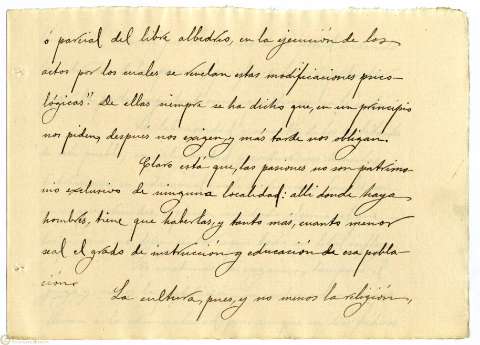 ó parcial del libre albedrio, en la ejecución de los
actos por los cuales se revelan estas modificaciones psico-
lógicas". De ellas siempre se ha dicho que, en un principio
nos piden, despues nos exigen y más tarde nos obligan.
Claro está que, las pasiones no son patrimo-
nio exclusivo de ninguna localidad: alli donde haya
hombres, tiene que haberlas, y tanto mas, cuanto menor
sea el grado de instrucción y educación de esa pobla-
ción.
La cultura, pues, y no menos la religión,